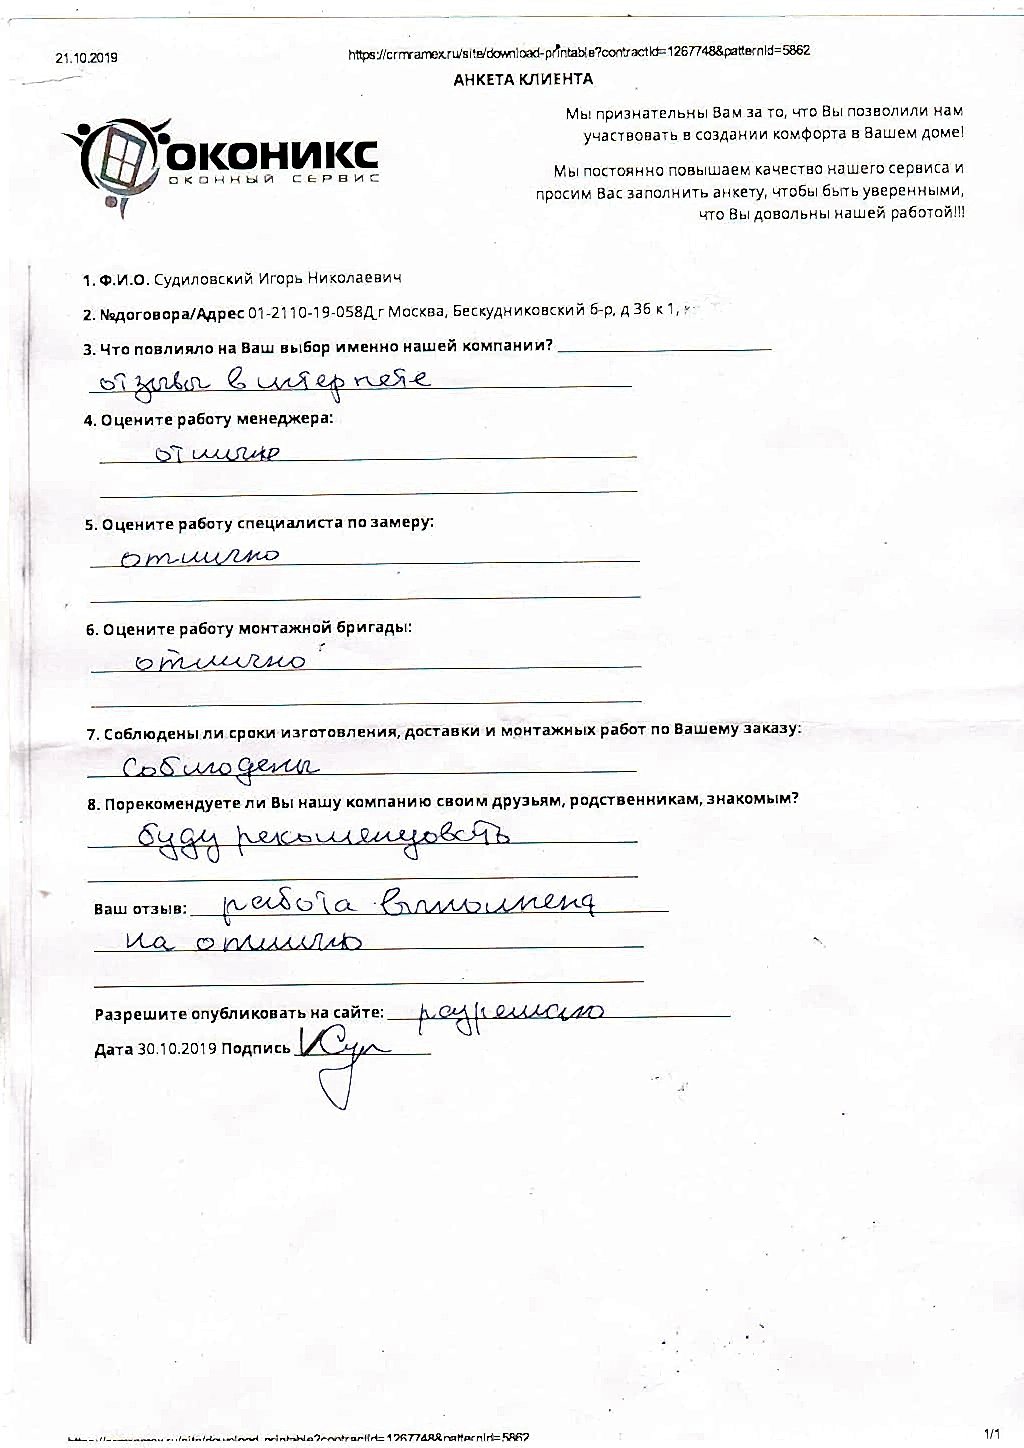 21.10.2019
https://crmramex.ru/site/download-printable?contractId=1267748&patternId=5862
АНКЕТА КЛИЕНТА
Мы признательны Вам за то, что Вы позволили нам
участвовать в создании комфорта в Вашем доме!
ОКОНИКС
ОКОННЫЙ СЕРВИС
Мы постоянно повышаем качество нашего сервиса и
просим Вас заполнить анкету, чтобы быть уверенными,
что Вы довольны нашей работой!!!
1. Ф.И.О. Судиловский Игорь Николаевич
2. №договора/Адрес 01-2110-19-058Д,г Москва, Бескудниковский б-р, д 36 к 1,
3. Что повлияло на Ваш выбор именно нашей компании?
отзывы в интернете
4. Оцените работу менеджера:
отлично
5. Оцените работу специалиста по замеру:
отлично
6. Оцените работу монтажной бригады:
отлично
7. Соблюдены ли сроки изготовления, доставки и монтажных работ по Вашему заказу:
соблюдены
8. Порекомендуете ли Вы нашу компанию своим друзьям, родственникам, знакомым?
буду рекомендовать
Ваш отзыв: работа выполнена
на отлично
Разрешите опубликовать на сайте: разрешаю
Дата 30.10.2019 Подпись
https://crmramex.ru/site/download-printable?contractId=1267748&patternId=5862
1/1